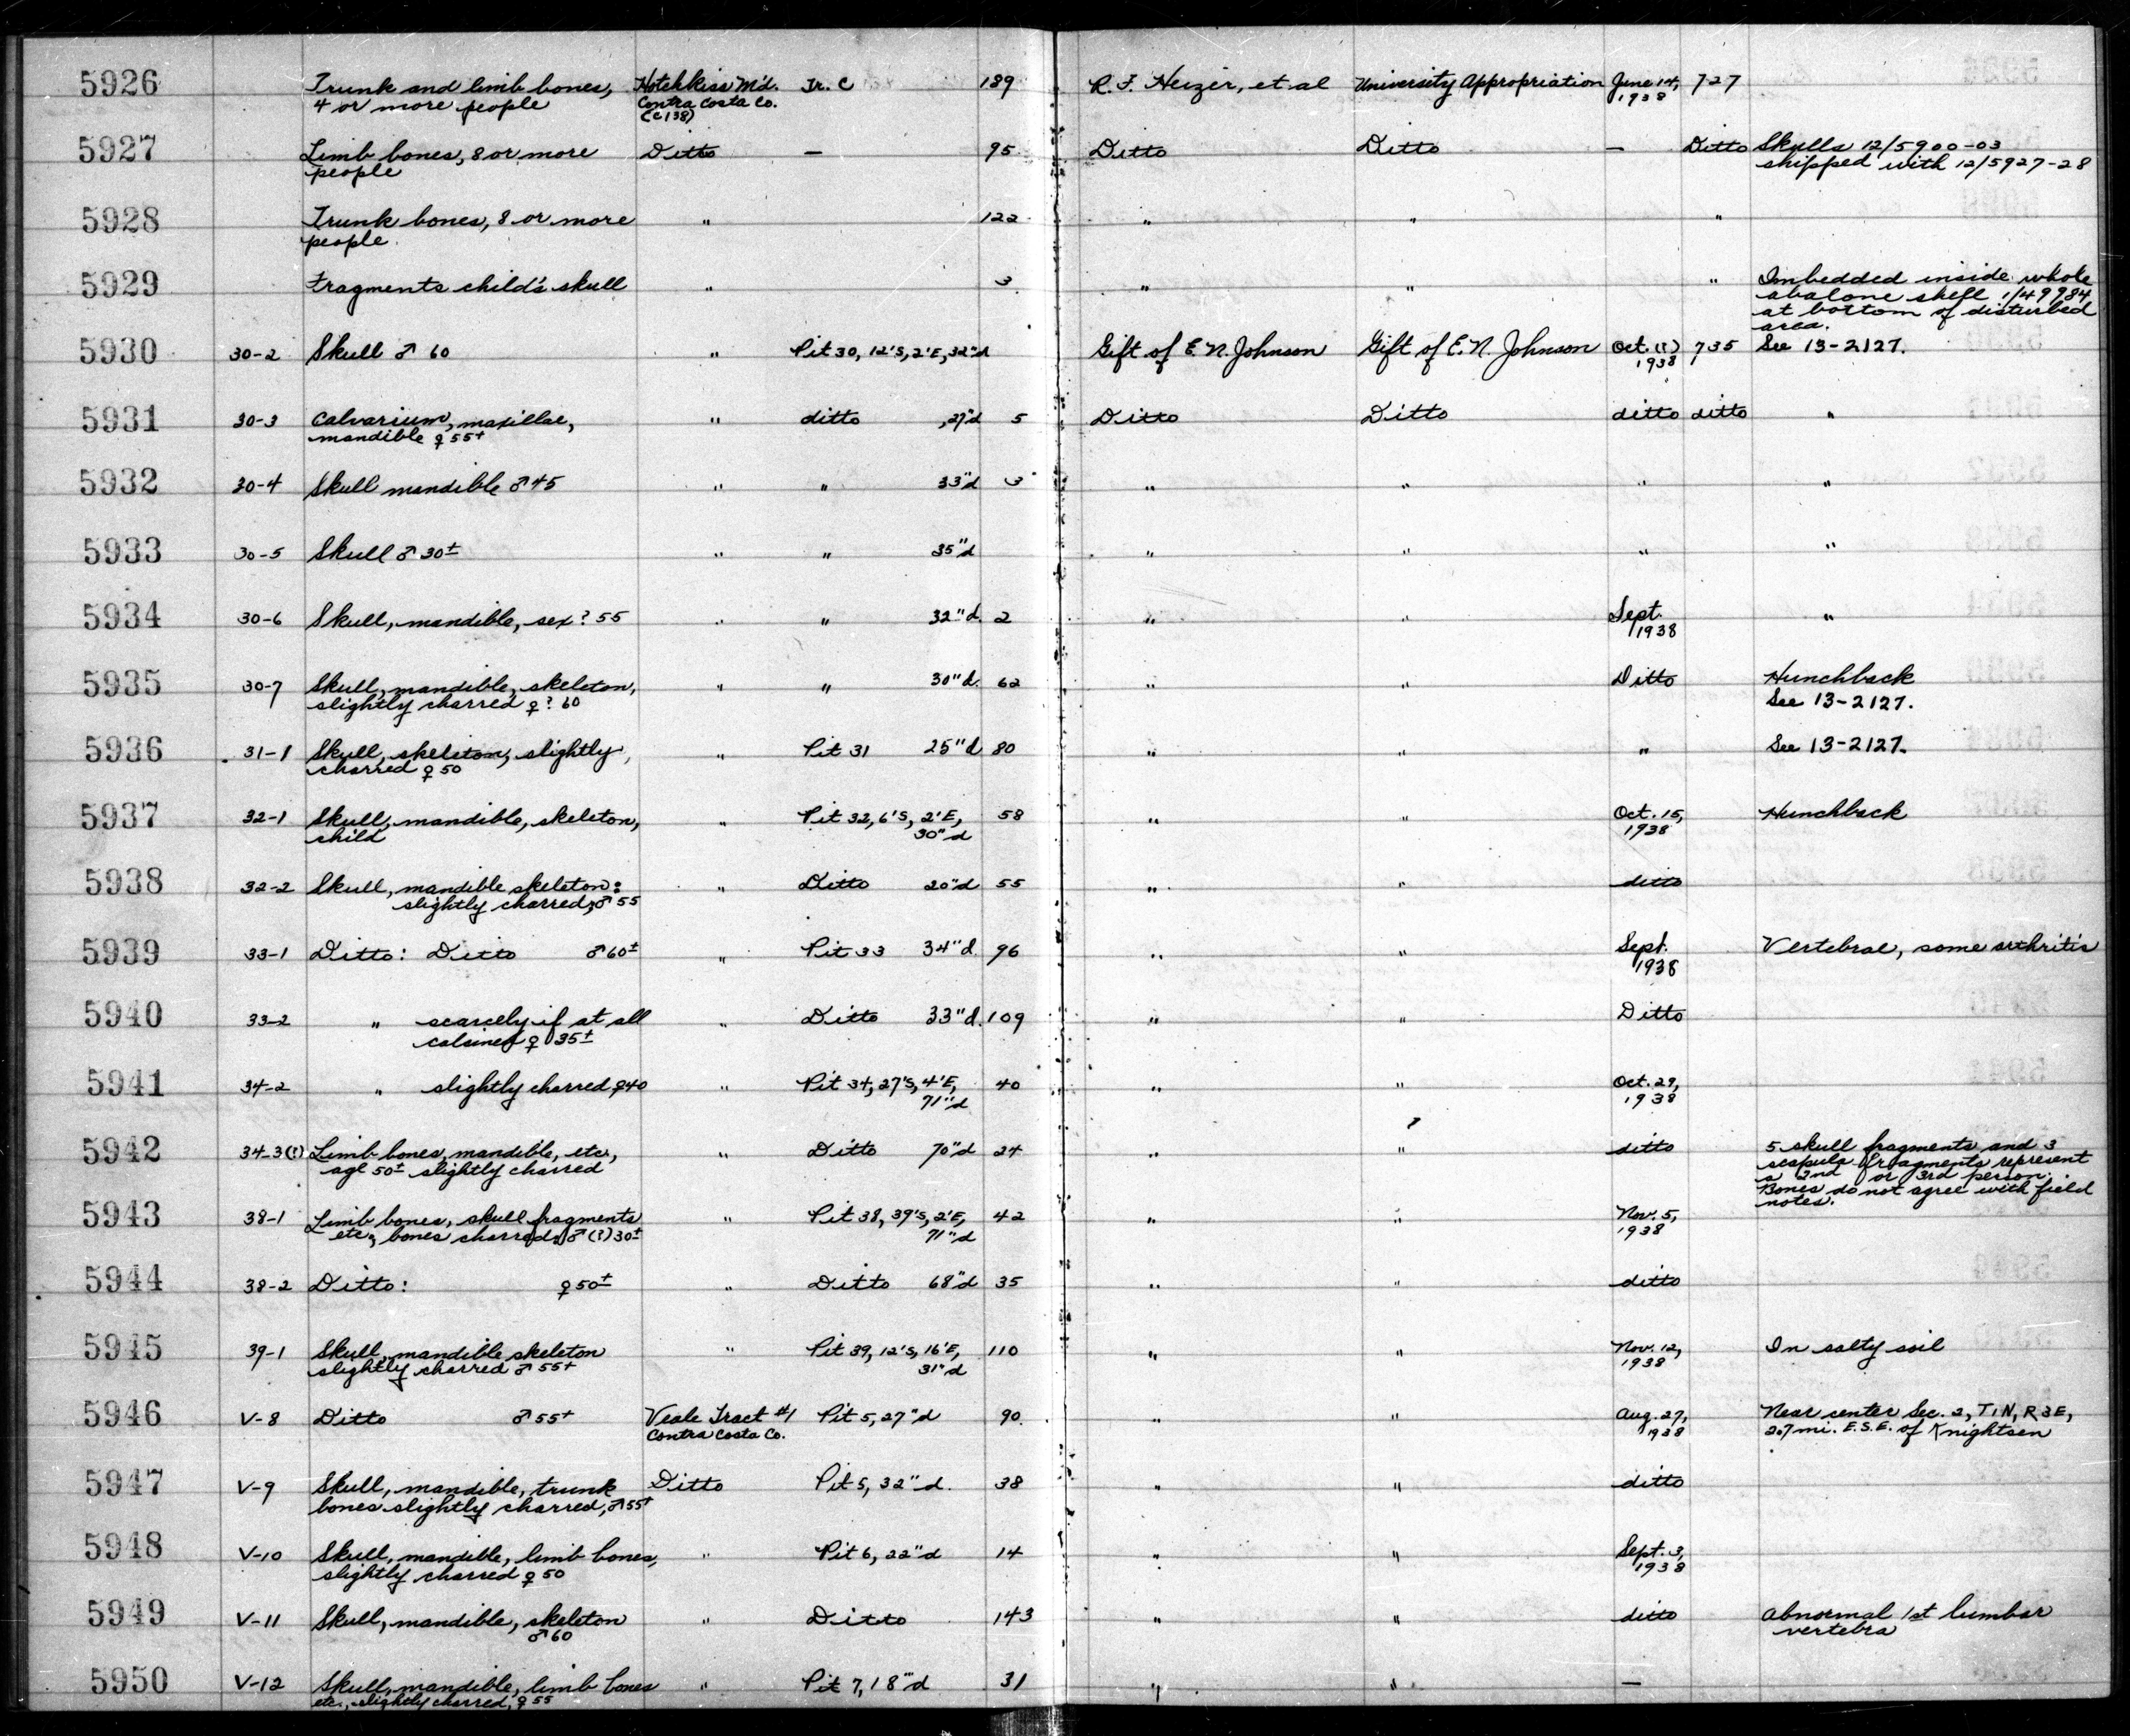 5926 Trunk and limb bones, Hotchkiss M'd. Tr. C 189 R. F. Heizer, et al University Appropriation June 14, 727
4 or more people Contra Costa Co. 1938
(C138)
5927 Limb bones, 8 or more Ditto — 95 Ditto Ditto — Ditto Skulls 12/5900-03
people shipped with 12/5927-28
5928 Trunk bones, 8 or more " 122 " " "
people.
5929 Fragments child's skull " 3 " " " Imbedded inside whole
abalone shell 1/49984
at bottom of disturbed
area.
5930 30-2 Skull ♂ 60 " Pit 30, 12'S, 2'E, 32"d Gift of E. N. Johnson Gift of E. N. Johnson Oct. (?) 735 See 13-2127.
1938
5931 30-3 Calvarium, maxillae, " ditto , 27"d 5 Ditto Ditto ditto ditto "
mandible ♀ 55+
5932 30-4 Skull mandible ♂ 45 " " 33"d 3 " " " "
5933 30-5 Skull ♂ 30± " " 35"d " " " "
5934 30-6 Skull, mandible, sex? 55 " " 32"d. 2 " " Sept. "
1938
5935 30-7 Skull, mandible, skeleton, " " 30"d. 62 " " Ditto Hunchback
slightly charred ♀? 60 See 13-2127.
5936 31-1 Skull, skeleton, slightly, " Pit 31 25"d 80 " " " See 13-2127.
charred ♀ 50
5937 32-1 Skull, mandible, skeleton, " Pit 32, 6'S, 2'E, 58 " " Oct. 15, Hunchback
child 30"d 1938
5938 32-2 Skull, mandible skeleton: " Ditto 20"d 55 " " ditto
slightly charred, ♂ 55
5939 33-1 Ditto: Ditto ♂ 60± " Pit 33 34"d. 96 " " Sept. Vertebrae, some arthritis
1938
5940 33-2 " scarcely if at all " Ditto 33"d. 109 " " Ditto
calcined ♀ 35±
5941 34-2 " slightly charred ♀40 " Pit 34, 27'S, 4'E, 40 " " Oct. 29,
71"d 1938
5942 34-3(?) Limb bones, mandible, etc., " Ditto 70"d 24 " " ditto 5 skull fragments and 3
age 50± slightly charred scapula fragments represent
a 2nd or 3rd person.
Bones do not agree with field
notes.
5943 38-1 Limb bones, skull fragments " Pit 38, 39'S, 2'E, 42 " " Nov. 5,
etc; bones charred; ♂ (?) 30± 71"d 1938
5944 38-2 Ditto: ♀ 50± " Ditto 68"d 35 " " ditto
5945 39-1 Skull, mandible skeleton " Pit 39, 12'S, 16'E, 110 " " Nov. 12, In salty soil
slightly charred ♂ 55+ 31"d 1938
5946 V-8 Ditto ♂ 55+ Veale Tract #1 Pit 5, 27"d 90 " " Aug. 27, Near center Sec. 2, T1N, R3E,
Contra Costa Co. 1938 2.7 mi. E.S.E. of Knightsen
5947 V-9 Skull, mandible, trunk Ditto Pit 5, 32"d. 38 " " ditto
bones slightly charred, ♂ 55+
5948 V-10 Skull, mandible, limb bones, " Pit 6, 22"d 14 " " Sept. 3,
slightly charred ♀ 50 1938
5949 V-11 Skull, mandible, skeleton " Ditto 143 " " ditto Abnormal 1st lumbar
♂ 60 vertebra
5950 V-12 Skull, mandible, limb bones " Pit 7, 18"d 31 " " —
etc., slightly charred, ♀ 55